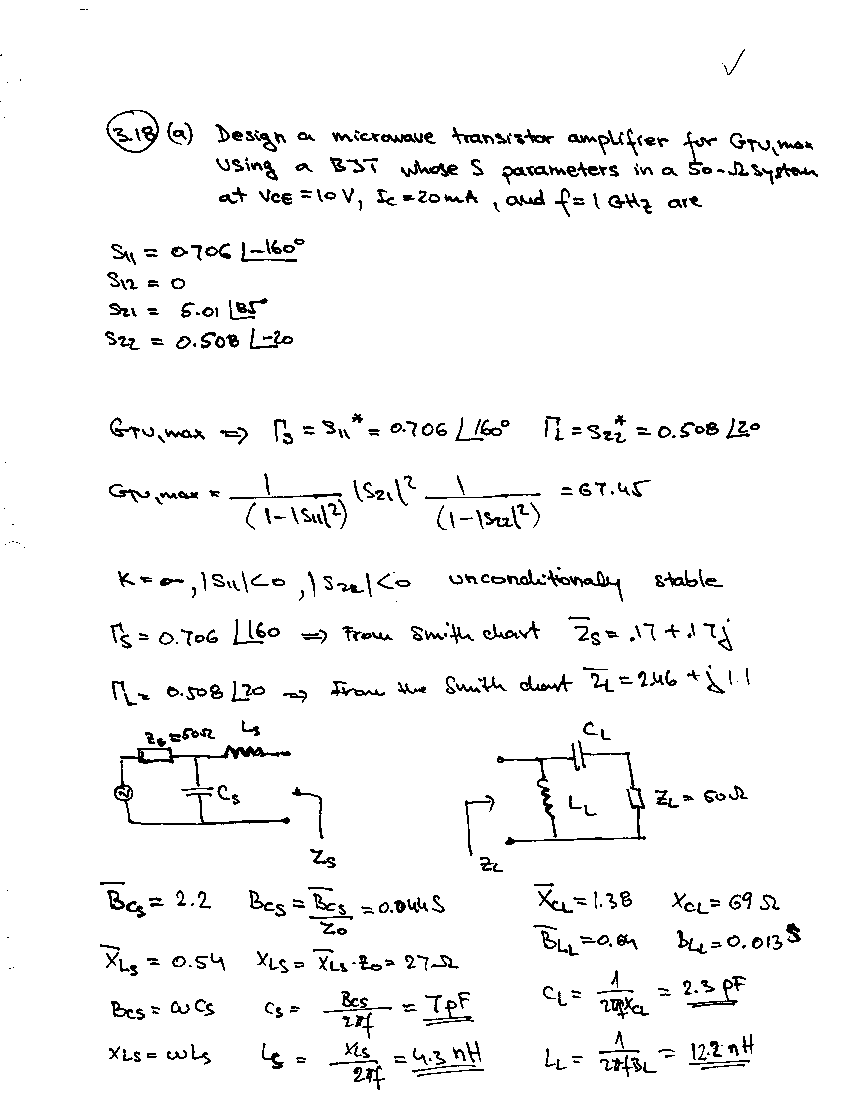 ✓
3.18 (a) Design a microwave transistor amplifier for GTU,max
Using a BJT whose S parameters in a 50-Ω system
at VCE = 10 V, IC = 20 mA, and f = 1 GHz are
S11 = 0.706 ∠-160°
S12 = 0
S21 = 5.01 ∠85°
S22 = 0.508 ∠-20
GTU,max ⇒ Γs = S11* = 0.706 ∠160° ΓL = S22* = 0.508 ∠20
GTU,max = 1/(1-|S11|²) |S21|² 1/(1-|S22|²) = 67.45
K = ∞, |S11|<0, |S22|<0 unconditionally stable
Γs = 0.706 ∠160 ⇒ From Smith chart Z̄s = .17 + .17j
ΓL = 0.508 ∠20 ⇒ From the Smith chart Z̄L = 2.46 + j 1.1
Z0 = 50Ω Ls
Cs
Zs
CL
LL ZL = 50Ω
ZL
B̄Cs = 2.2 BCs = B̄Cs/Z0 = 0.044 S
X̄Ls = 0.54 XLs = X̄Ls·Z0 = 27Ω
BCs = ωCs Cs = BCs/2πf = 7pF
XLs = ωLs Ls = XLs/2πf = 4.3 nH
X̄CL = 1.38 XCL = 69 Ω
B̄LL = BLL = 0.013 S
CL = 1/2πfXCL = 2.3 pF
LL = 1/2πfBL = 12.2 nH